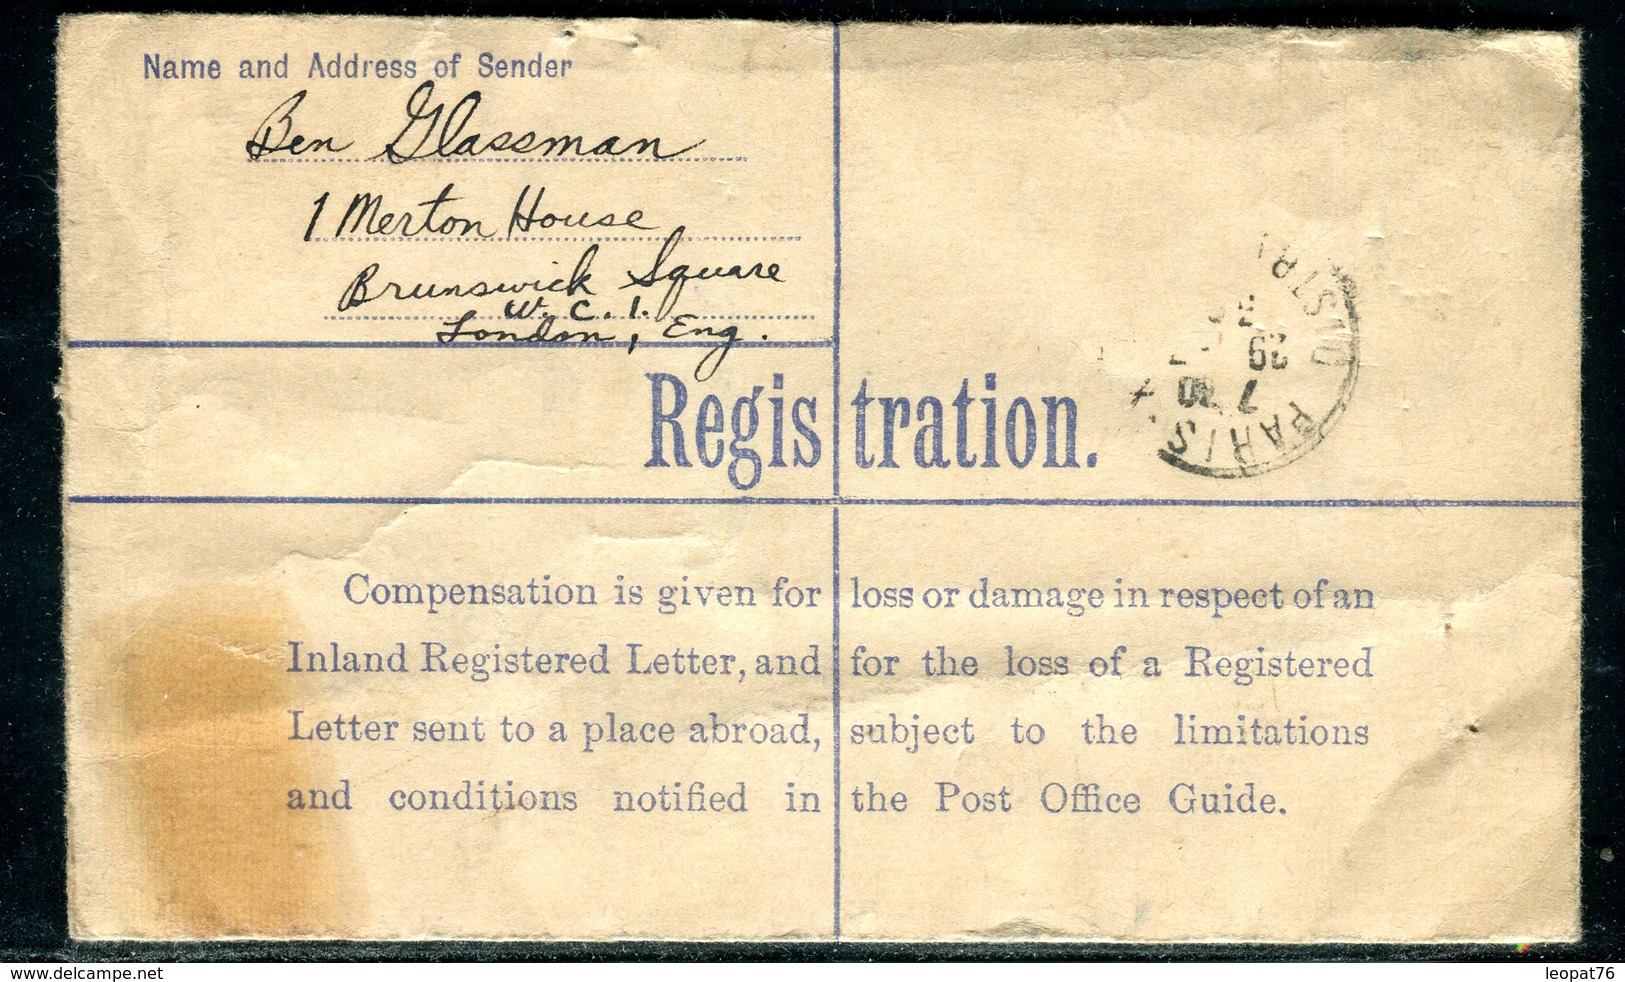 Name and Address of Sender
Ben Glassman
1 Merton House
Brunswick Square
W. C. 1.
London, Eng.
Registration.
PARIS
DISTRI
7
29
Compensation is given for loss or damage in respect of an
Inland Registered Letter, and for the loss of a Registered
Letter sent to a place abroad, subject to the limitations
and conditions notified in the Post Office Guide.
www.delcampe.net
leopat76